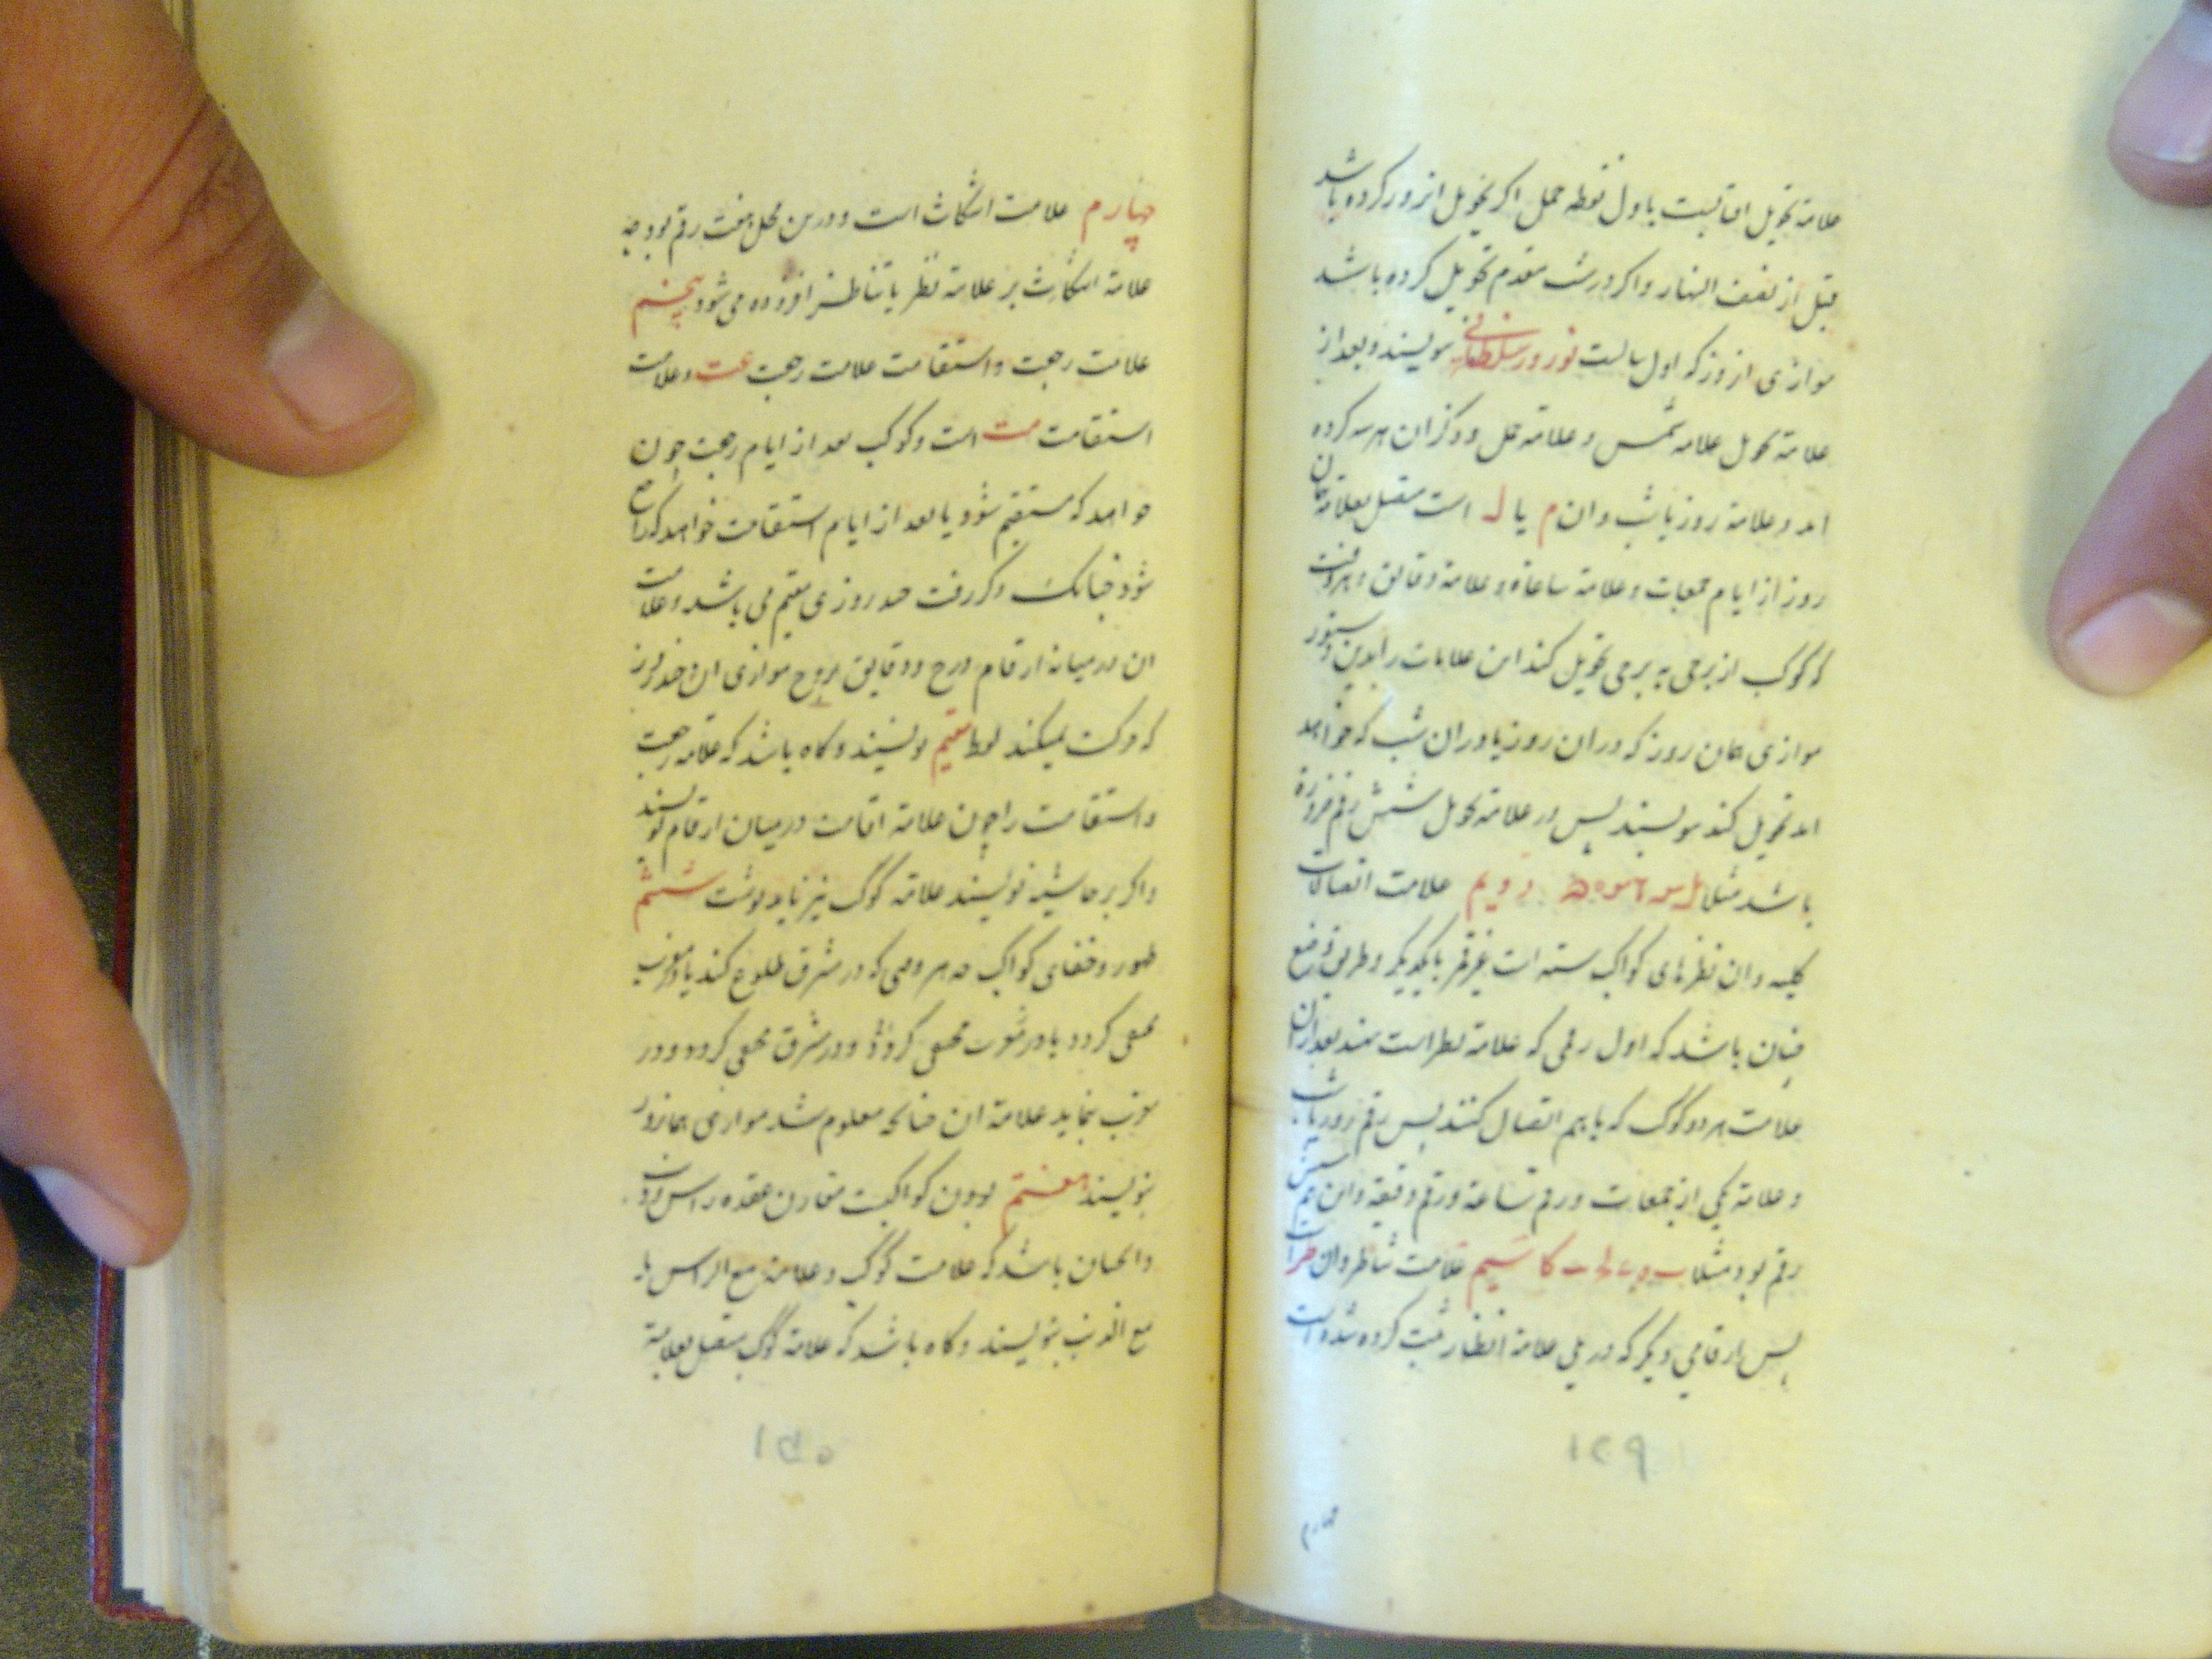 علامة تحویل افتابست باول نقطه حمل اکر تحویل انروز کرده باشد
قبل از نصف النهار و اکر در شب مقدم تحویل کرده باشد
موازی ان روز که اول سالست نوروز سلطانی نویسند و بعد از
علامة تحویل علامه شمس و علامة حمل و ذکر ان هر سه کرده
اند و علامة روز یا شب و ان م یا ل است متصل بعلامة همان
روز از ایام جمعات و علامة ساعاة و علامة دقایق و هر وقت
که کوکب از برجی به برجی تحویل کند این علامات را بدین دستور
موازی همان روز که در ان روز یا در ان شب که خواهد
تحویل کند نویسند پس در علامة تحویل شش رقم
باشد مثلا دویم علامت اتصالات
کلیه و ان نظرهای کواکب سته است غیر قمر با یکدیکر و طریق وضع
چنان باشد که اول رقمی که علامة نظر است نهند بعد از ان
علامت هر دو کوکب که با هم اتصال کنند پس رقم روز یا شب
و علامة یکی از جمعات و رقم ساعة و رقم دقیقه و ان هم
رقم بود مثلا سیم علامت تناظر و ان
پس ارقامی دیکر که در پی علامة انظار ثبت کرده شده است
۱۴۹
چهارم
چهارم علامت است و درین محل هفت رقم بود چه
علامة بر علامة نظر یا تناظر افزوده می شود پنجم
علامت رجعت و استقامت علامت رجعت عت و علامت
استقامت مت است و کوکب بعد از ایام رجعت چون
خواهد که مستقیم شود یا بعد از ایام استقامت خواهد که راجع
شود چنانک ذکر رفت چند روزی مقیم می باشد و علامت
ان در میانه ارقام درج و دقایق بروج موازی ان چند روز
که حرکت نمیکند لفظ مقیم نویسند و کاه باشد که علامة رجعت
و استقامت را چون علامة اقامت در میان ارقام نویسند
و اکر بر حاشیه نویسند علامة کوکب نیز باید نوشت ششم
ظهور و خفای کواکب چه هر وقتی که در مشرق طلوع کند یا در مغرب
مخفی کردد یا در مغرب مخفی کردد و در مشرق مخفی کردد و در
مغرب نماید علامة ان چنانچه معلوم شد موازی همانروز
بنویسند هفتم بودن کواکبست مقارن عقده راس و ذنب
و انچنان باشد که علامت کوکب و علامة مع الراس یا
مع الذنب بنویسند و کاه باشد که علامة کوکب متصل بعلامة
۱۵۰